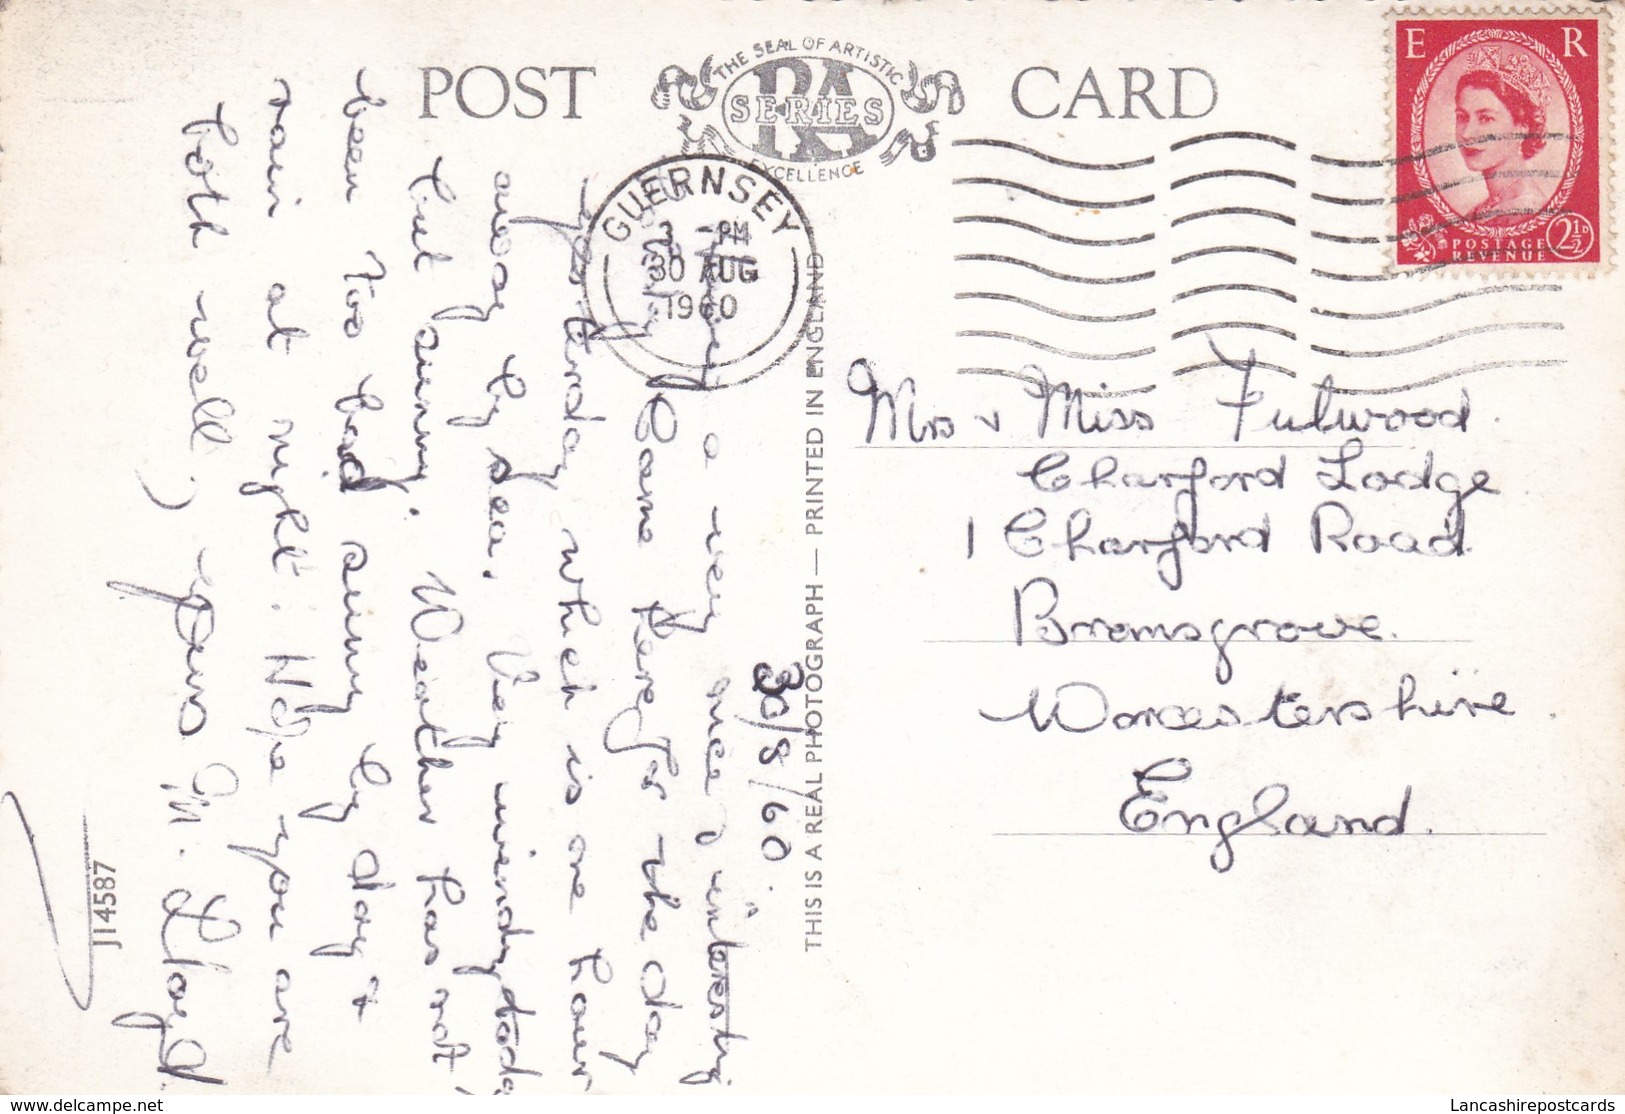 POST CARD
THE SEAL OF ARTISTIC
RA
SERIES
EXCELLENCE
E R
POSTAGE
REVENUE
2½D
GUERNSEY
3 - PM
30 AUG
1960
THIS IS A REAL PHOTOGRAPH — PRINTED IN ENGLAND
30/8/60.
a very nice, interesting
Came here for the day
yesterday which is one hour
away by sea. Very windy today
but sunny. Weather has not
been too bad sunny by day &
rain at night. Hope you are
both well, yours M. Lloyd
J14587
Mrs & Miss Fulwood.
Charford Lodge.
1 Charford Road.
Bromsgrove.
Worcestershire.
England.
www.delcampe.net
Lancashirepostcards